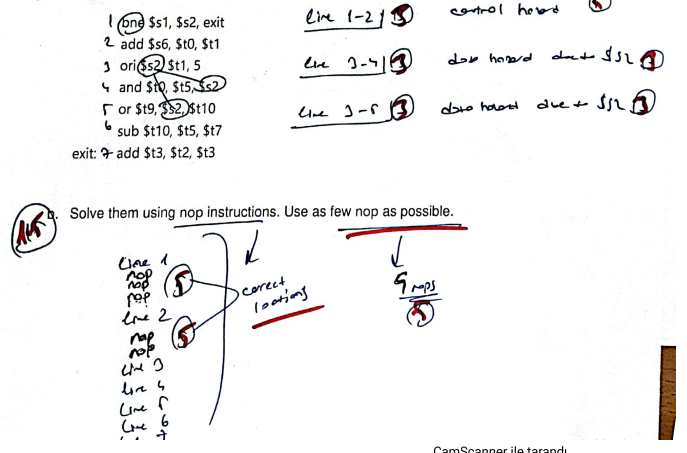 1 bne $s1, $s2, exit
line 1-2 3 control hazard 5
2 add $s6, $t0, $t1
3 ori $s2, $t1, 5
line 3-4 3 data hazard due to $s2 3
4 and $t0, $t5, $s2
5 or $t9, $s2, $t10
line 3-5 3 data hazard due to $s2 3
6 sub $t10, $t5, $t7
exit: 7 add $t3, $t2, $t3
b. Solve them using nop instructions. Use as few nop as possible.
line 1
nop
nop 5
nop
correct locations
5 nops
5
line 2
nop 5
nop
line 3
line 4
line 5
line 6
CamScanner ile tarandı